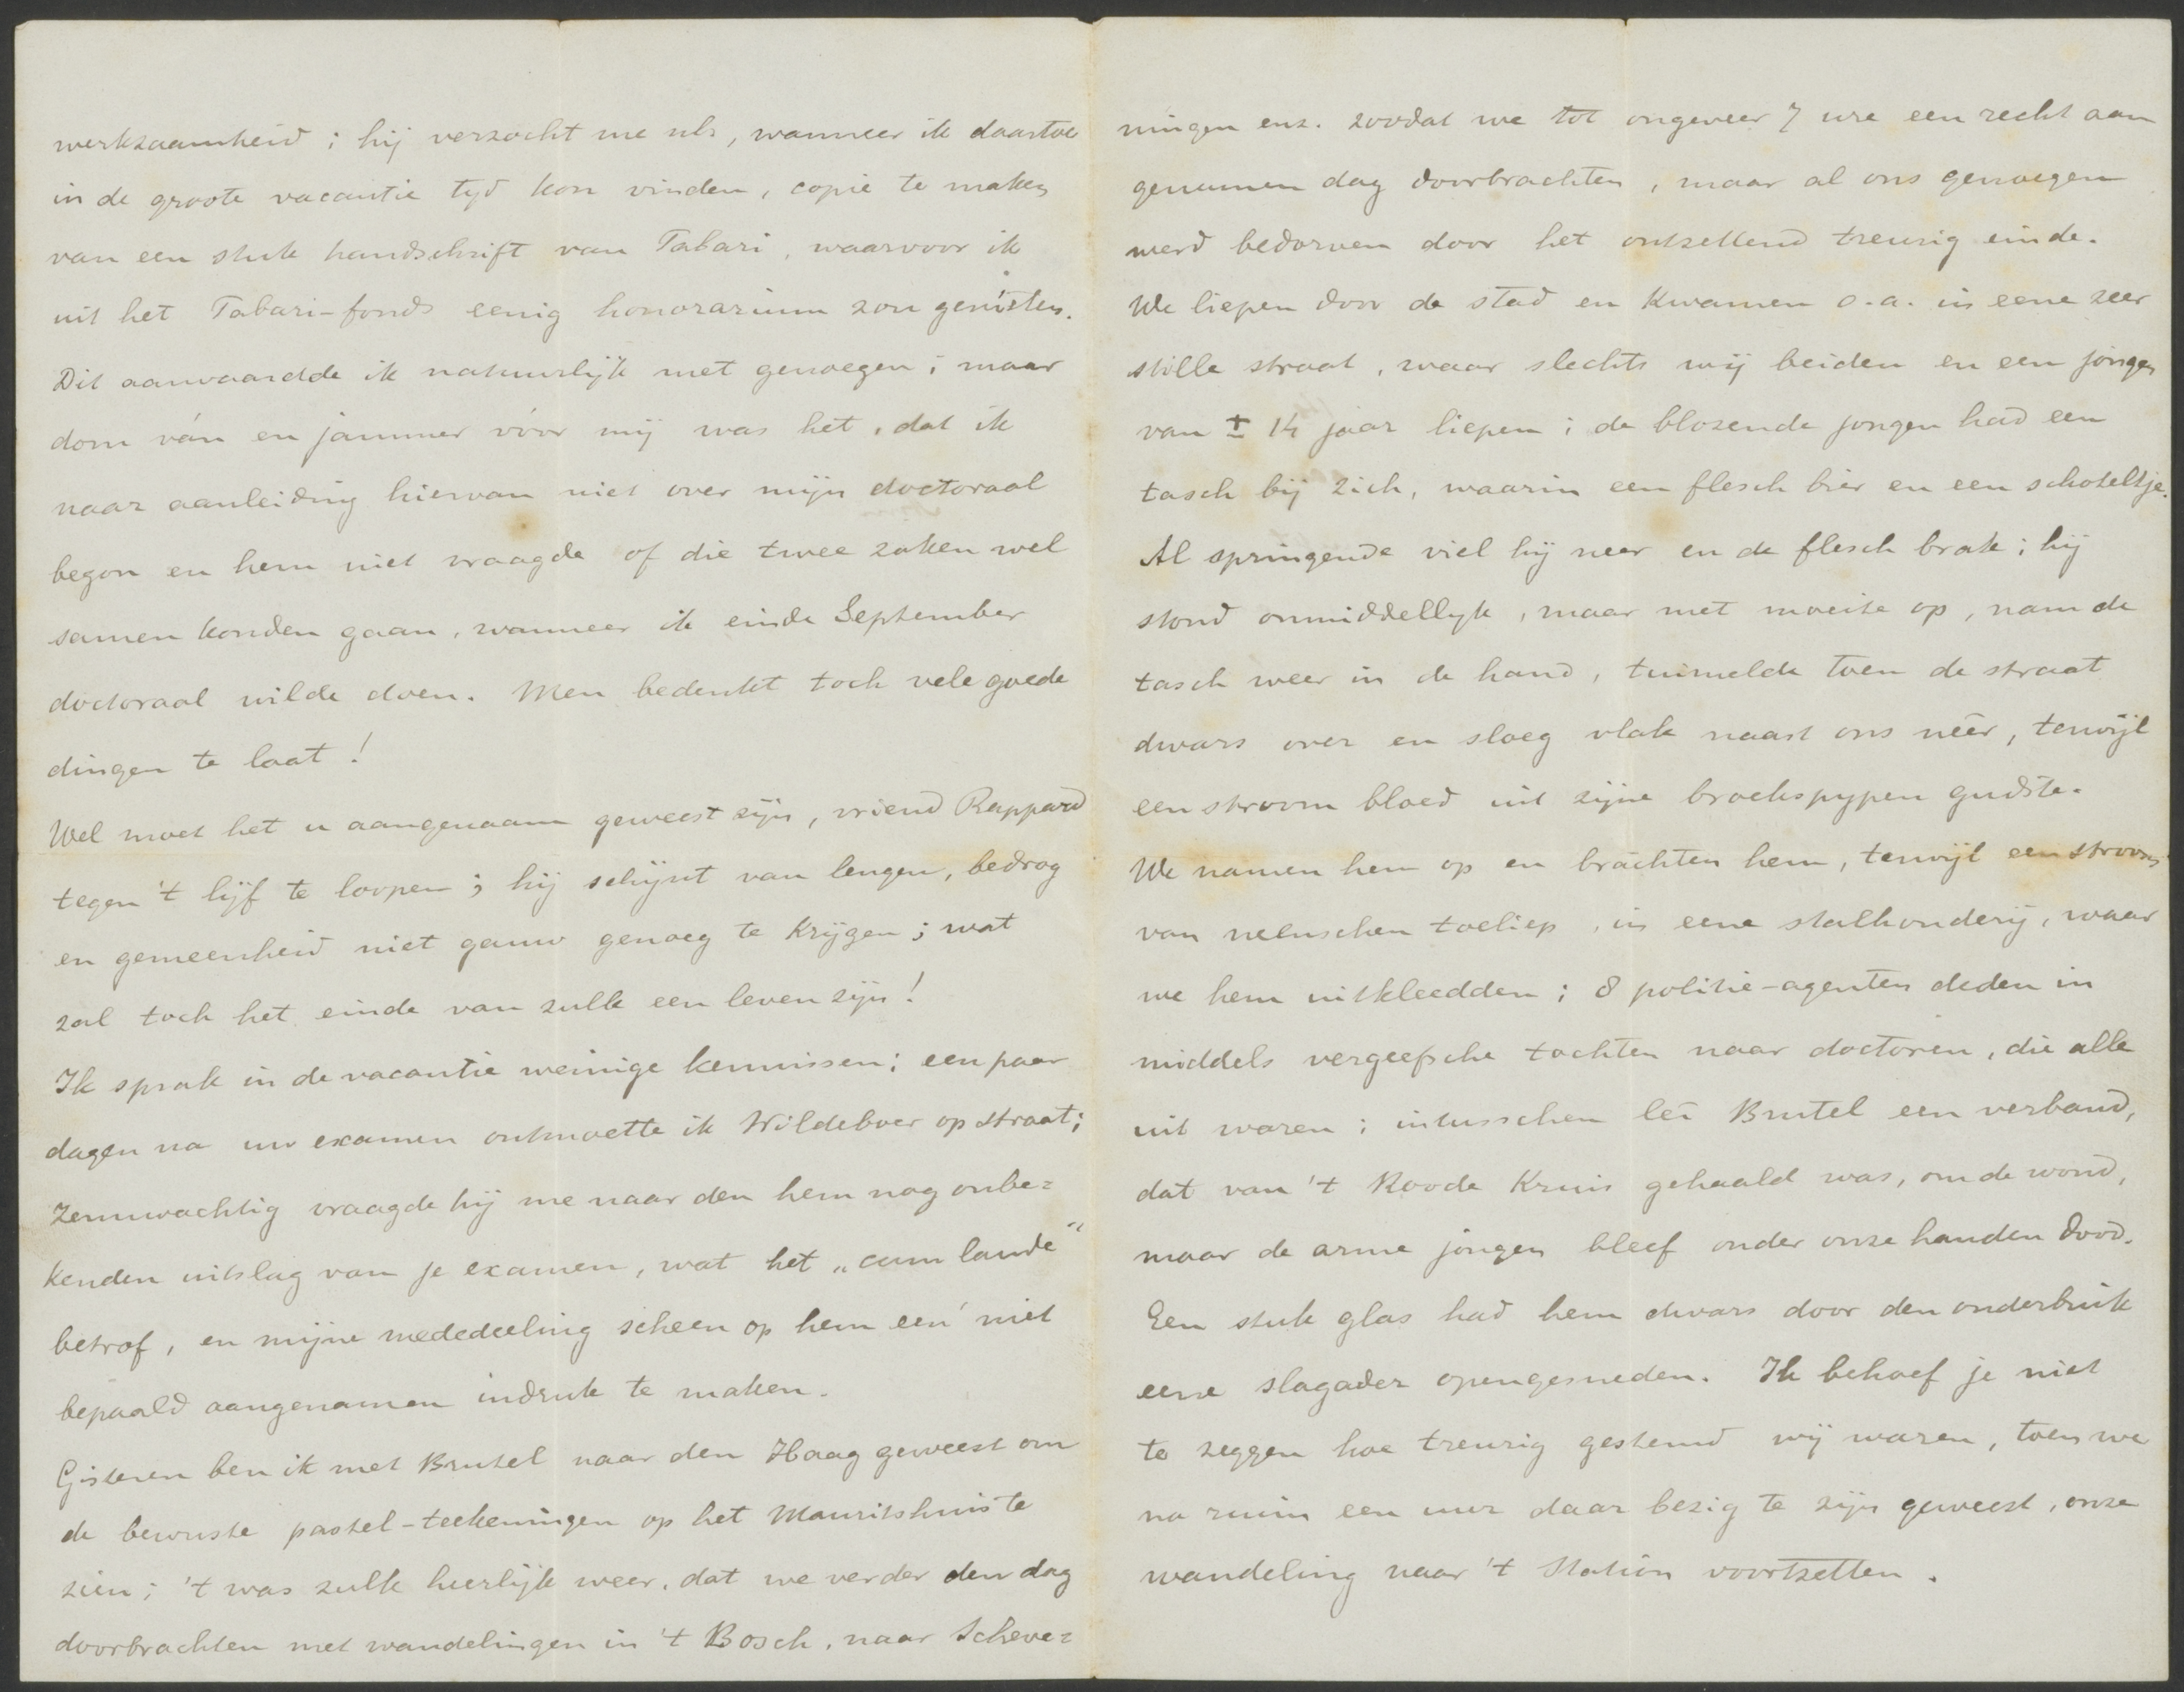 werkzaamheid ; hij verzocht me nls, wanneer ik daartoe
in de groote vacantie tyd kon vinden, copie te maken
van een stuk handschrift van Tabari, waarvoor ik
uit het Tabari-fonds eenig honorarium zou genieten.
Dit aanvaardde ik natuurlijk met genoegen ; maar
dom ván en jammer vóór mij was het, dat ik
naar aanleiding hiervan niet over mijn doctoraal
begon en hem niet vraagde of die twee zaken wel
samen konden gaan, wanneer ik einde September
doctoraal wilde doen. Men bedenkt toch vele goede
dingen te laat !
Wel moet het u aangenaam geweest zijn, vriend Rappard
tegen 't lijf te loopen ; hij schijnt van leugen, bedrog
en gemeenheid niet gauw genoeg te krijgen ; wat
zal toch het einde van zulk een leven zijn !
Ik sprak in de vacantie weinige kennissen ; een paar
dagen na uw examen ontmoette ik Wildeboer op straat ;
Zenuwachtig vraagde hij me naar den hem nog onbe=
kenden uitslag van je examen, wat het „cum laude"
betrof, en mijne mededeeling scheen op hem een niet
bepaald aangenamen indruk te maken.
Gisteren ben ik met Brutel naar den Haag geweest om
de bewuste pastel-teekeningen op het Mauritshuis te
zien ; 't was zulk heerlijk weer, dat we verder den dag
doorbrachten met wandelingen in 't Bosch, naar Scheve=
ningen enz. zoodat we tot ongeveer 7 ure een recht aan
genamen dag doorbrachten, maar al ons genoegen
werd bedorven door het ontzettend treurig einde.
We liepen door de stad en kwamen o.a. in eene zeer
stille straat, waar slechts wij beiden en een jongen
van ± 14 jaar liepen ; de blozende jongen had een
tasch bij zich, waarin een flesch bier en een schoteltje.
Al springende viel hij neer en de flesch brak ; hij
stond onmiddellyk, maar met moeite op, nam de
tasch weer in de hand, tuimelde toen de straat
dwars over en sloeg vlak naast ons néér, terwijl
een stroom bloed uit zijne broekspypen gudste.
We namen hem op en brachten hem, terwijl een stroom
van menschen toeliep, in eene stalhouderij, waar
we hem uitkleedden ; 8 politie-agenten deden in
middels vergeefsche tochten naar doctoren, die alle
uit waren ; intusschen lei Brutel een verband,
dat van 't Roode Kruis gehaald was, om de wond,
maar de arme jongen bleef onder onze handen dood.
Een stuk glas had hem dwars door den onderbuik
eene slagader opengesneden. Ik behoef je niet
te zeggen hoe treurig gestemd wij waren, toen we
na ruim een uur daar bezig te zijn geweest, onze
wandeling naar 't Station voortzetten.